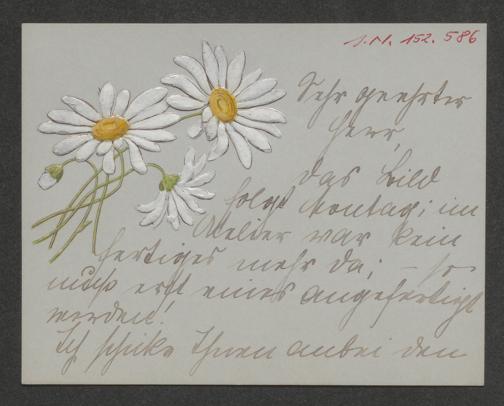 J.N. 152.586
Sehr geehrter
Herr,
das Bild
folgt Montag; im
Atelier war kein
fertiges mehr da; – so
muß erst eines angefertigt
werden!
Ich schicke Ihnen anbei den